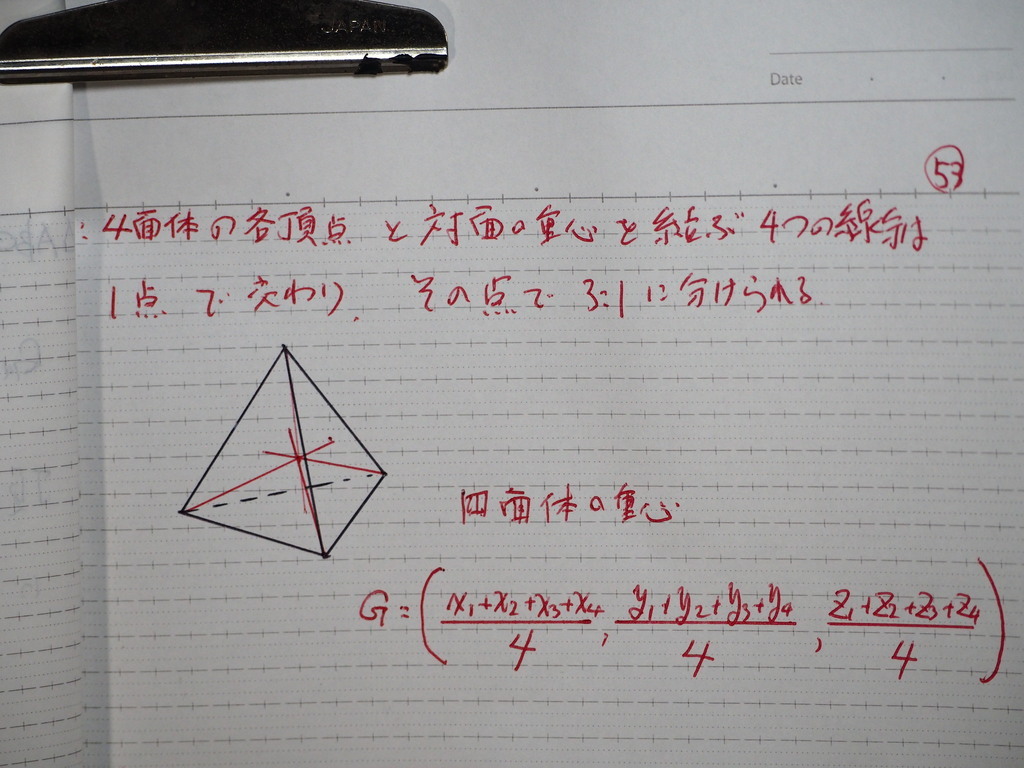 JAPAN
Date
53
:4面体の各頂点と対面の重心を結ぶ4つの線分は
1点で交わり、その点で3:1に分けられる
四面体の重心
G=(x₁+x₂+x₃+x₄/4, y₁+y₂+y₃+y₄/4, z₁+z₂+z₃+z₄/4)